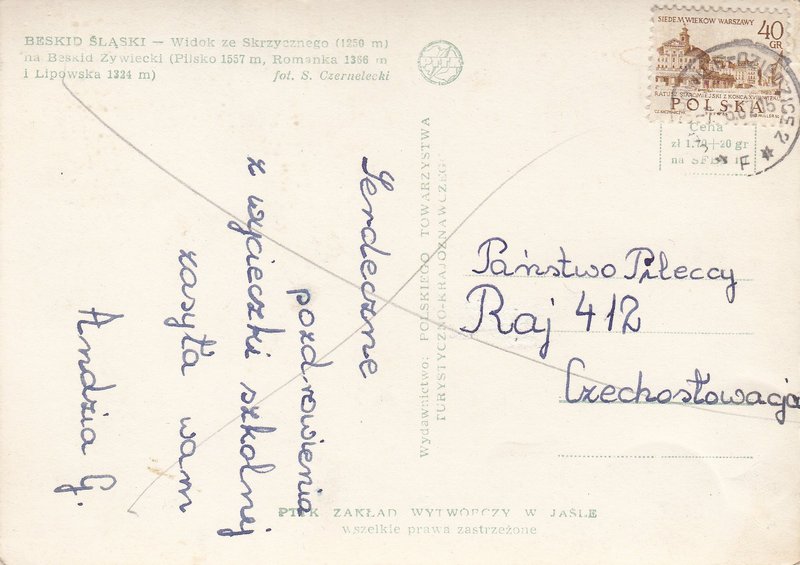 BESKID ŚLĄSKI — Widok ze Skrzycznego (1250 m)
na Beskid Żywiecki (Pilsko 1557 m, Romanka 1366 m
i Lipowska 1324 m)
fot. S. Czernelecki
SIEDEM WIEKÓW WARSZAWY
40
GR
RATUSZ STAROMIEJSKI Z KOŃCA XVIII WIEKU
POLSKA
Cena
zł 1.70+20 gr
na SFBS
2
F
Serdeczne
pozdrowienia
z wycieczki szkolnej
zasyła wam
Andzia G.
Wydawnictwo: POLSKIEGO TOWARZYSTWA
TURYSTYCZNO-KRAJOZNAWCZEGO
Państwo Pileccy
Raj 412
Czechosłowacja
PTTK ZAKŁAD WYTWÓRCZY W JAŚLE
wszelkie prawa zastrzeżone